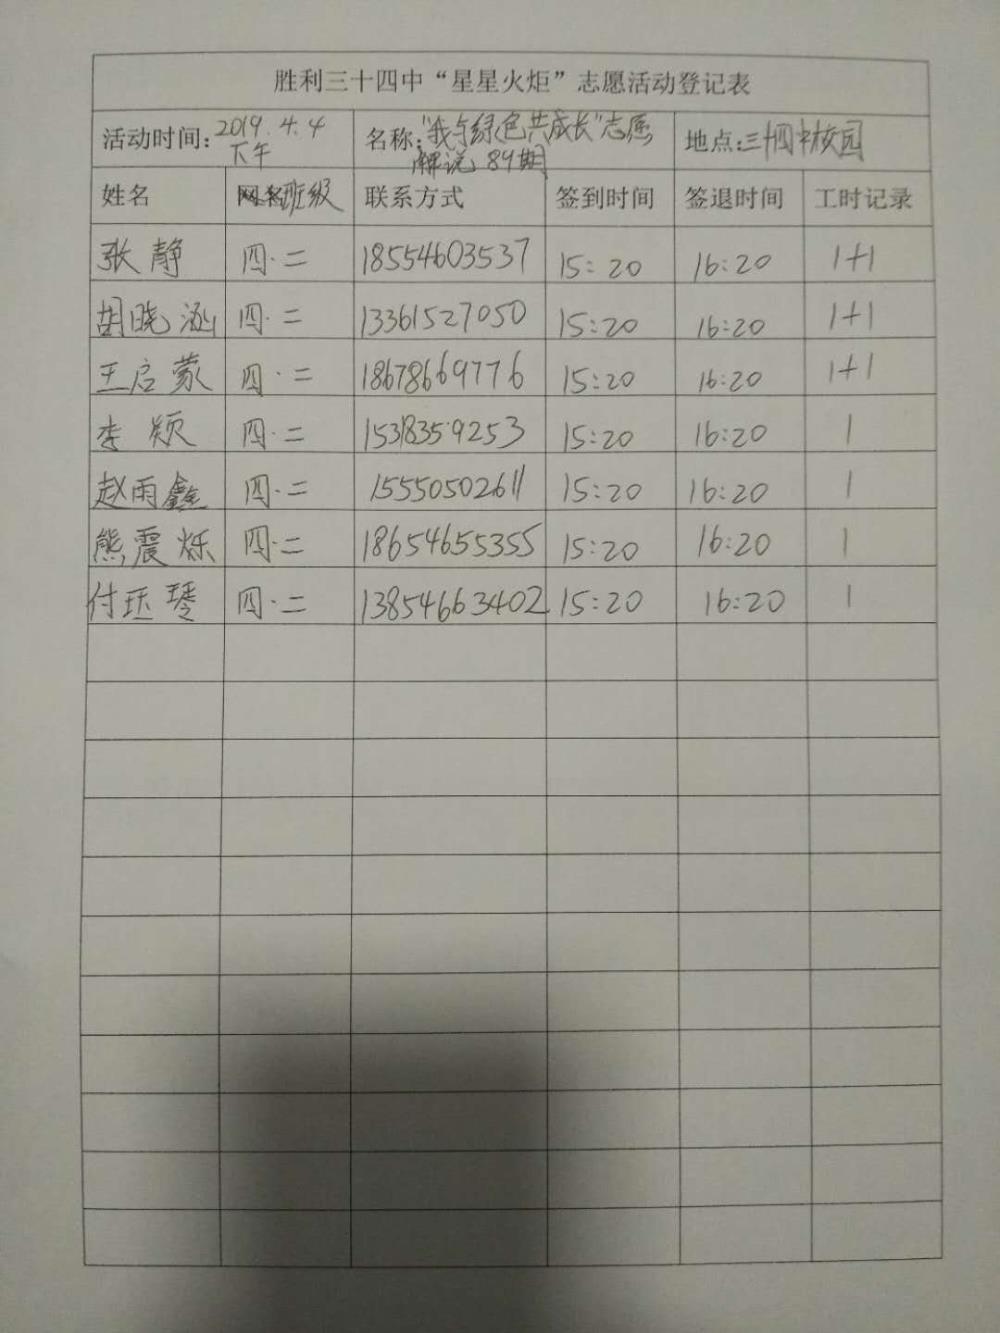 胜利三十四中“星星火炬”志愿活动登记表
活动时间：2019.4.4 下午 名称：“我与绿色共成长”志愿解说 89期 地点：三十四中校园
姓名 班级 联系方式 签到时间 签退时间 工时记录
张静 四·二 18554603537 15:20 16:20 1+1
胡晓涵 四·二 13361527050 15:20 16:20 1+1
王启蒙 四·二 18678669776 15:20 16:20 1+1
李颍 四·二 15318359253 15:20 16:20 1
赵雨鑫 四·二 15550502611 15:20 16:20 1
熊震烁 四·二 18654655355 15:20 16:20 1
付珏琴 四·二 13854663402 15:20 16:20 1